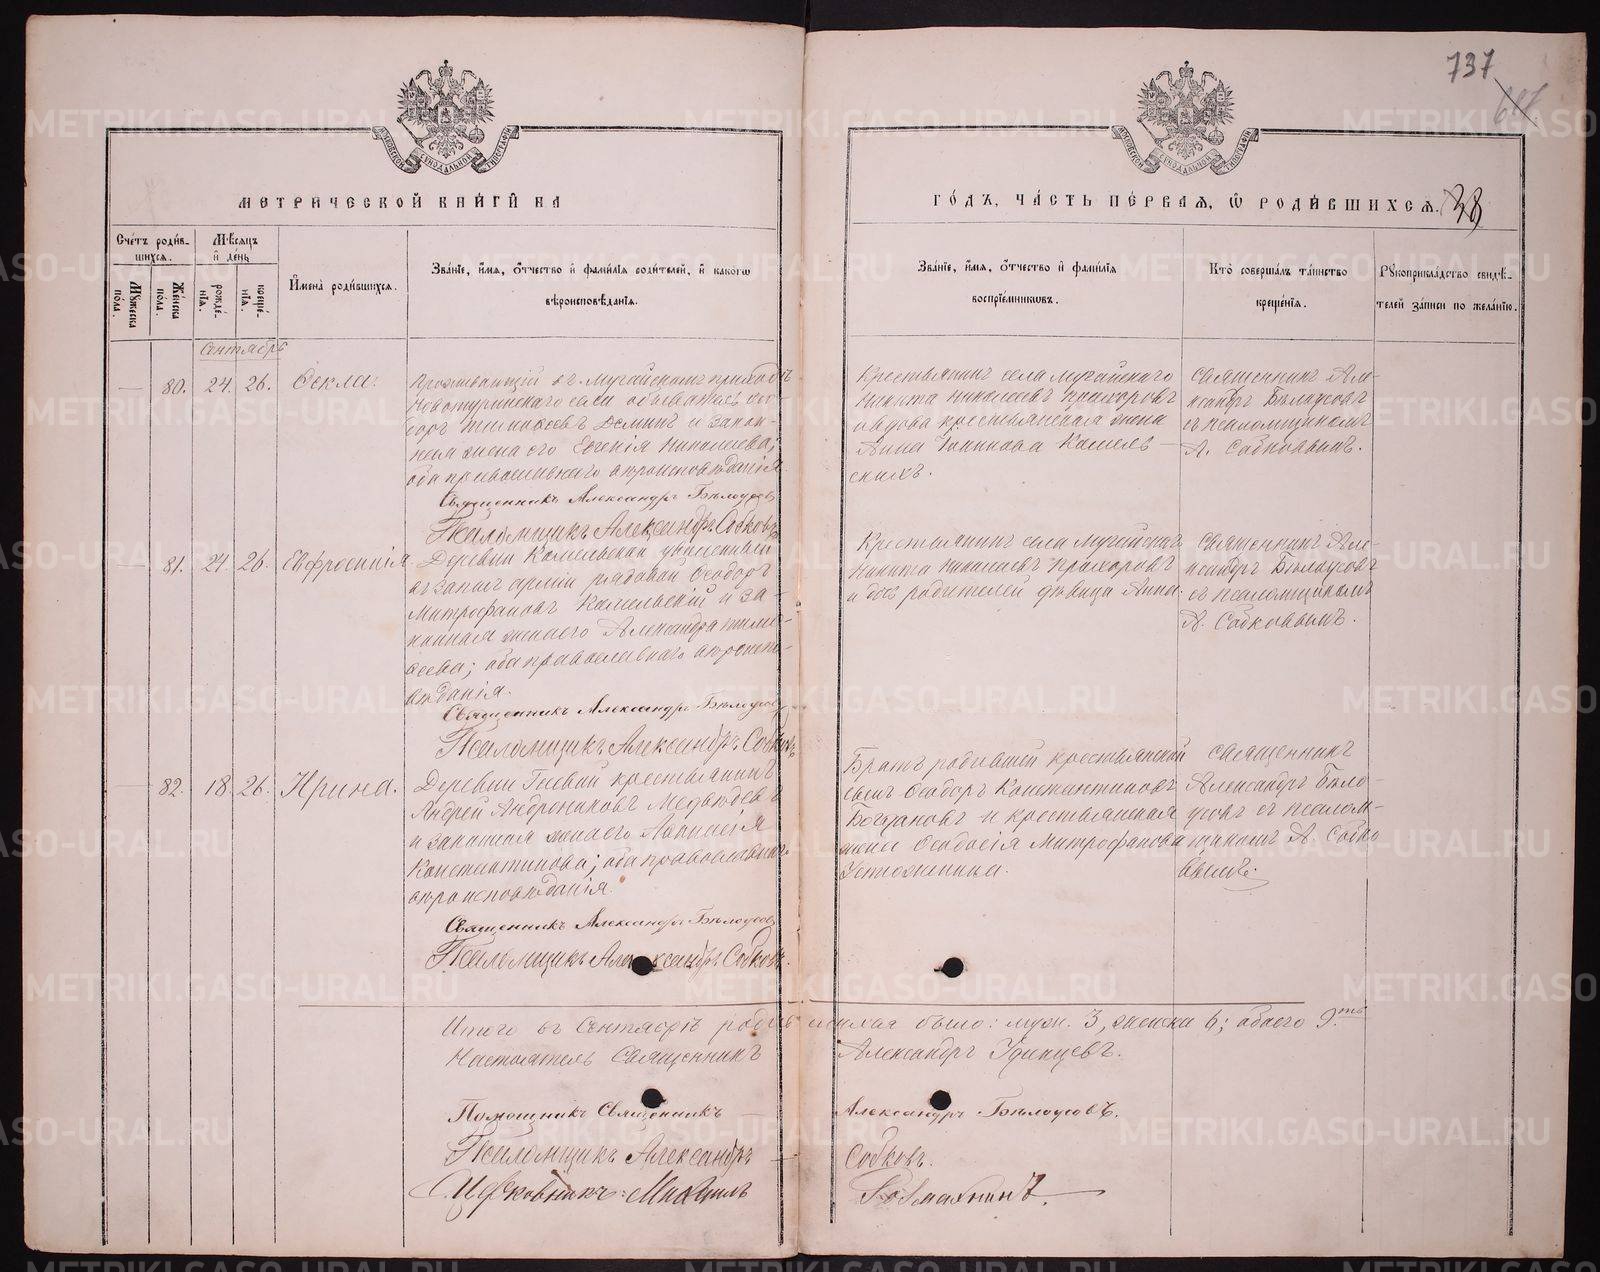 737
МЕТРИЧЕСКОЙ КНИГИ НА
ГОДЪ, ЧАСТЬ ПЕРВАЯ, Ѡ РОДИВШИХСЯ.
38
Счетъ родив-
шихся.
Мѣсяцъ
и день
Мужеска
пола.
Женска
пола.
рожде-
нія.
креще-
нія.
Имена родившихся.
Званіе, имя, отчество и фамилія родителей, и какогѡ
вѣроисповѣданія.
Званіе, имя, отчество и фамилія
воспріемниковъ.
Кто совершалъ таинство
крещенія.
Рукоприкладство свидѣ-
телей записи по желанію.
Сентябрь
80. 24. 26. Ѳекла.
Проживающій въ Мугайскомъ приходѣ
Новотуринскаго села
Тимофеевъ Деминъ и закон-
ная жена его Евгенія Николаева;
оба православнаго вѣроисповѣданія.
Священникъ Александръ Бѣлоусовъ
Псаломщикъ Александръ Собковъ
Крестьянинъ села Мугайскаго
Никита Николаевъ Прохоровъ
и вдова крестьянская жена
Анна Іоаннова Кошель-
скихъ.
Священникъ Але-
ксандръ Бѣлоусовъ
съ псаломщикомъ
А. Собковымъ.
81. 24 26. Евфросинія
Деревни Кошельской уволенный
въ запасъ арміи рядовой Ѳеодоръ
Митрофановъ Кошельскій и за-
конная жена его Александра Тимо-
ѳеева; оба православнаго вѣроиспо-
вѣданія.
Священникъ Александръ Бѣлоусовъ
Псаломщикъ Александръ Собковъ
Крестьянинъ села Мугайскаго
Никита Николаевъ Прохоровъ
и родителей дѣвица Анна.
Священникъ Але-
ксандръ Бѣлоусовъ
съ псаломщикомъ
А. Собковымъ.
82. 18. 26. Ирина.
Деревни Гаевой крестьянинъ
Андрей Андрониковъ Медвѣдевъ
и законная жена его Аѳанасія
Константинова; оба православнаго
вѣроисповѣданія.
Священникъ Александръ Бѣлоусовъ
Псаломщикъ Александръ Собковъ.
Братъ родившей крестьянскій
сынъ Ѳеодоръ Константиновъ
Богдановъ и крестьянская
жена Ѳеодосія Митрофанова
Устюжанина.
Священникъ
Александръ Бѣло-
усовъ съ псалом-
щикомъ А. Собко
вымъ.
Итого въ Сентябрѣ родившихся было: муж. 3, женска 6; обоего 9.ть
Настоятель Священникъ Александръ Удинцевъ.
Помощникъ Священникъ — Александръ Бѣлоусовъ.
Псаломщикъ Александръ — Собковъ.
Церковникъ: Михаилъ
METRIKI.GASO-URAL.RU